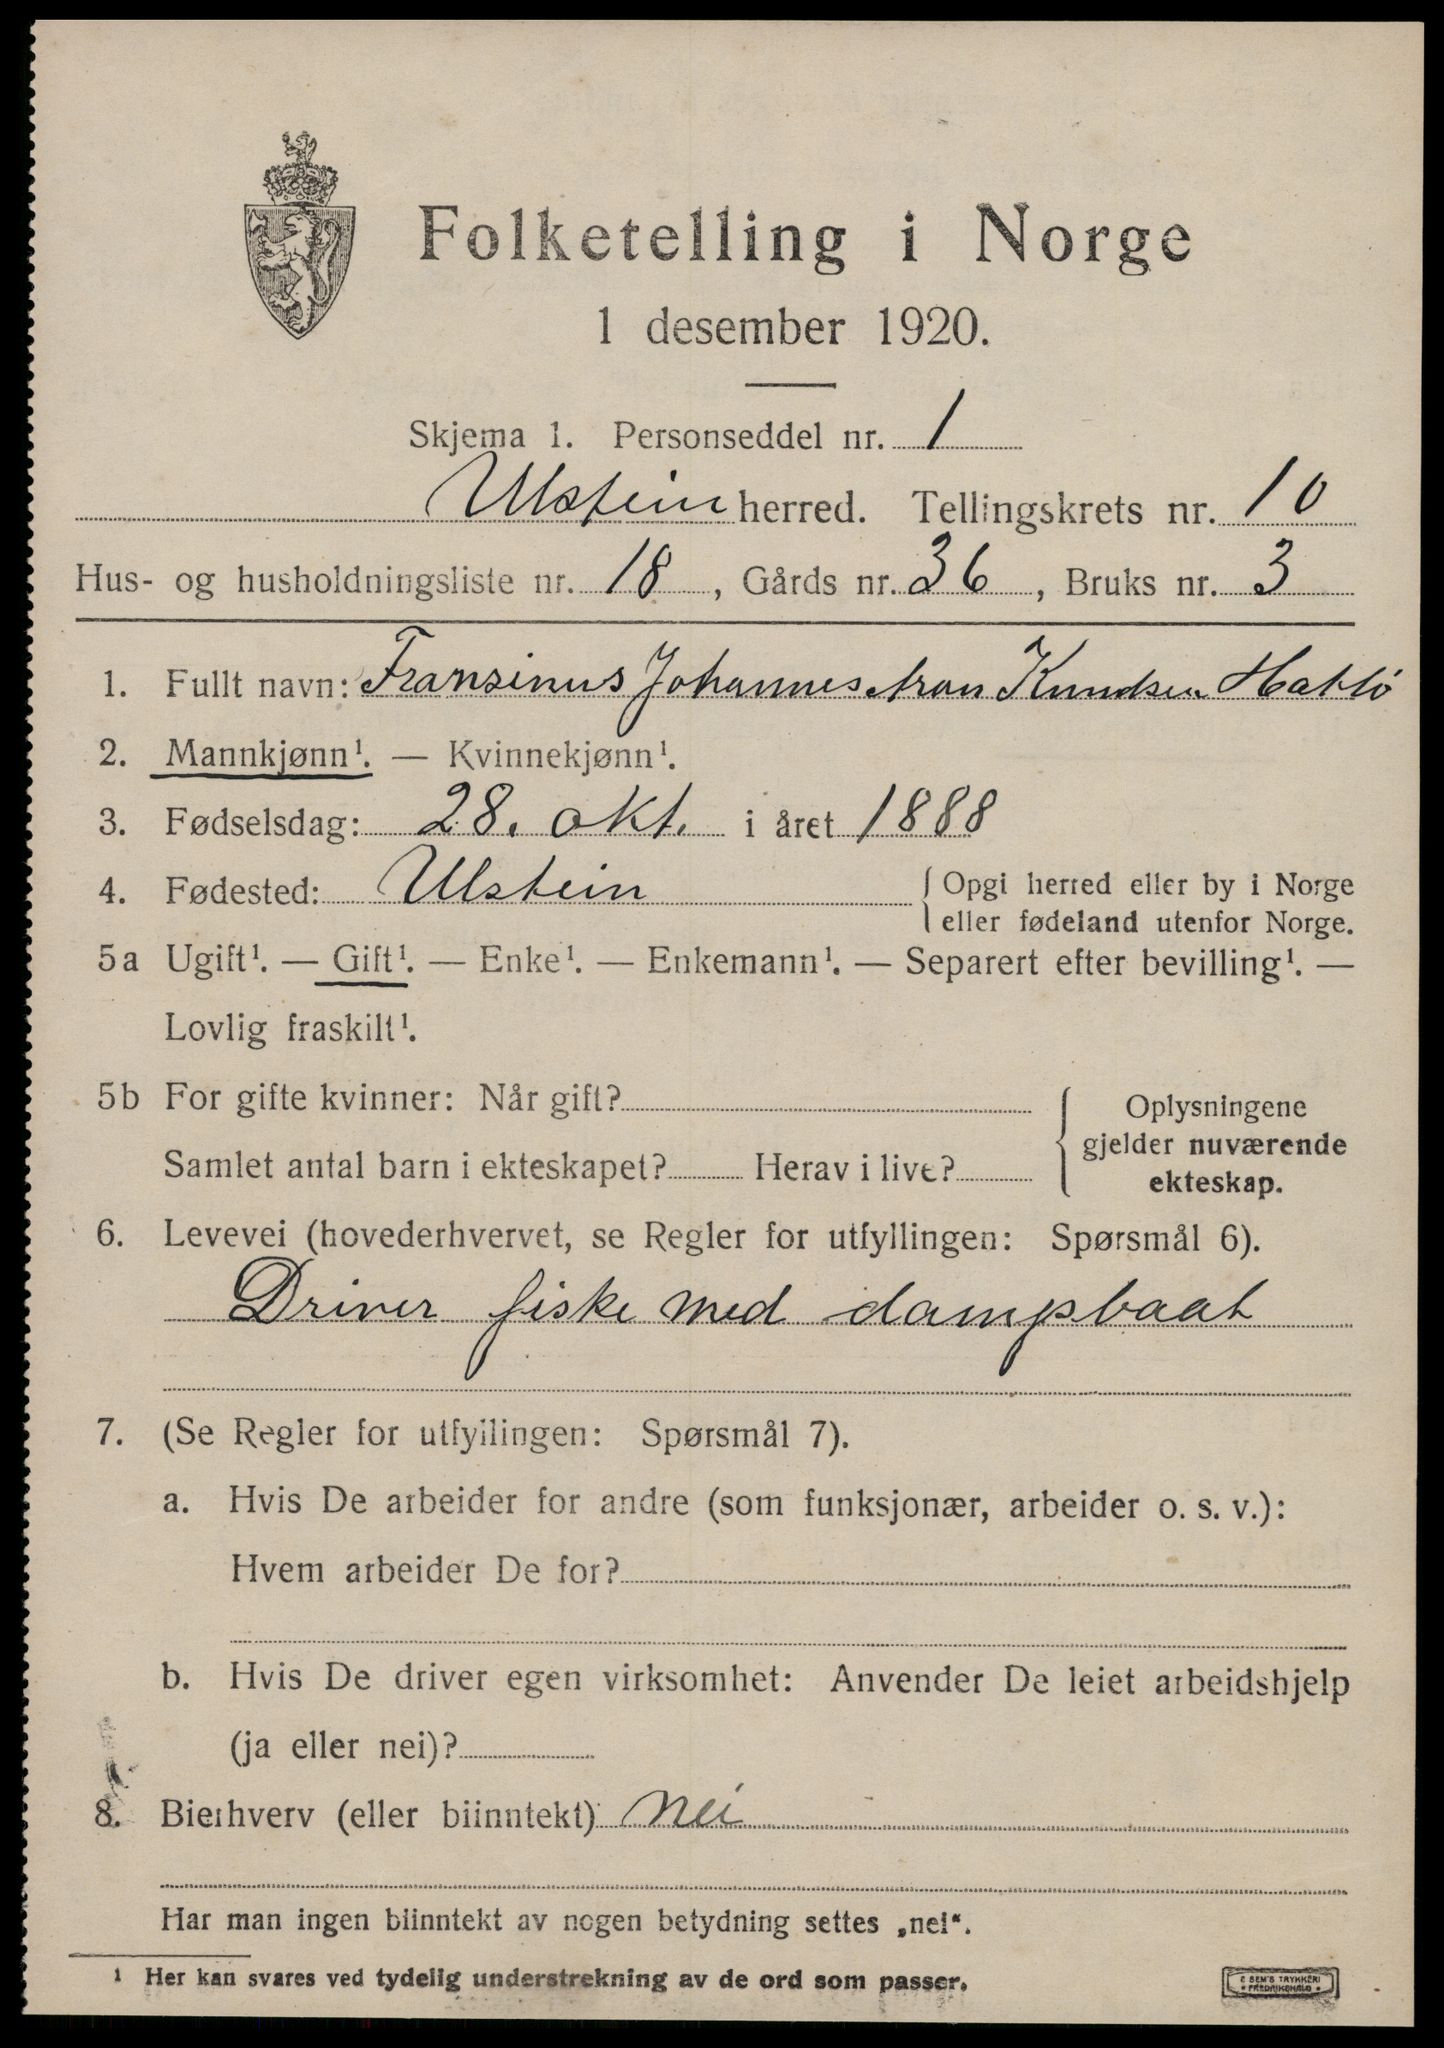 Folketelling i Norge
1 desember 1920.
Skjema 1. Personseddel nr. 1
Ulstein herred. Tellingskrets nr. 10
Hus- og husholdningsliste nr. 18, Gårds nr. 36, Bruks nr. 3
1. Fullt navn: Fransinus Johannes Aron Knudsen Hatlö
2. Mannkjønn¹. — Kvinnekjønn¹.
3. Fødselsdag: 28. okt. i året 1888
4. Fødested: Ulstein { Opgi herred eller by i Norge
eller fødeland utenfor Norge.
5a Ugift¹. — Gift¹. — Enke¹. — Enkemann¹. — Separert efter bevilling¹. —
Lovlig fraskilt¹.
5b For gifte kvinner: Når gift?
Samlet antal barn i ekteskapet? Herav i live?
{ Oplysningene
gjelder nuværende
ekteskap.
6. Levevei (hovederhvervet, se Regler for utfyllingen: Spørsmål 6).
Driver fiske med dampbaat
7. (Se Regler for utfyllingen: Spørsmål 7).
a. Hvis De arbeider for andre (som funksjonær, arbeider o. s. v.):
Hvem arbeider De for?
b. Hvis De driver egen virksomhet: Anvender De leiet arbeidshjelp
(ja eller nei)?
8. Bierhverv (eller biinntekt) nei
Har man ingen biinntekt av nogen betydning settes „nei“.
¹ Her kan svares ved tydelig understrekning av de ord som passer.
E SEM'S TRYKKERI
FREDRIKSHALD